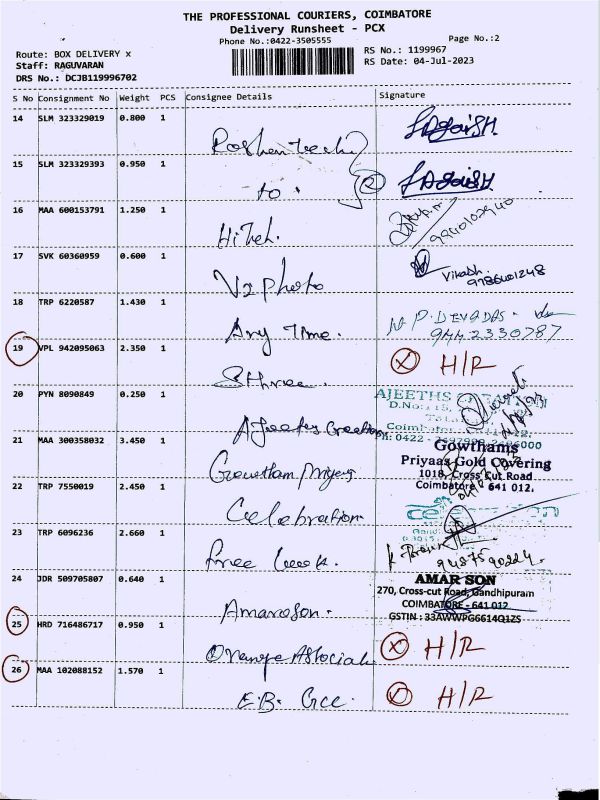 THE PROFESSIONAL COURIERS, COIMBATORE
Delivery Runsheet - PCX
Phone No.:0422-3505555
Page No.:2
Route: BOX DELIVERY x
RS No.: 1199967
Staff: RAGUVARAN
RS Date: 04-Jul-2023
DRS No.: DCJB119996702
S No Consignment No Weight PCS Consignee Details Signature
14 SLM 323329019 0.800 1
15 SLM 323329393 0.950 1
to 2
16 MAA 600153791 1.250 1
HiTel. 9940102940
17 SVK 60360959 0.600 1
V2 Photo Vikash. 9786401248
18 TRP 6220587 1.430 1
Any Time. N. P. DEVADAS. 9442330787
19 VPL 942095063 2.350 1
Sthree. X H/R
20 PYN 8090849 0.250 1
AJEETHS
D.No
Coimbatore
Ph: 0422
21 MAA 300358032 3.450 1
Gowthams
Priyaas Gold Covering
1018, Cross Cut Road
Coimbatore 641 012.
22 TRP 7550019 2.450 1
Celebration
23 TRP 6096236 2.660 1
Free Look.
24 JDR 509705807 0.640 1
AMAR SON
270, Cross-cut Road, Gandhipuram
COIMBATORE - 641 012
GSTIN : 33AWWPG6614Q1ZS
Amarson.
25 HRD 716486717 0.950 1
Orange Associate X H/R
26 MAA 102088152 1.570 1
E.B. Gcc. H/R